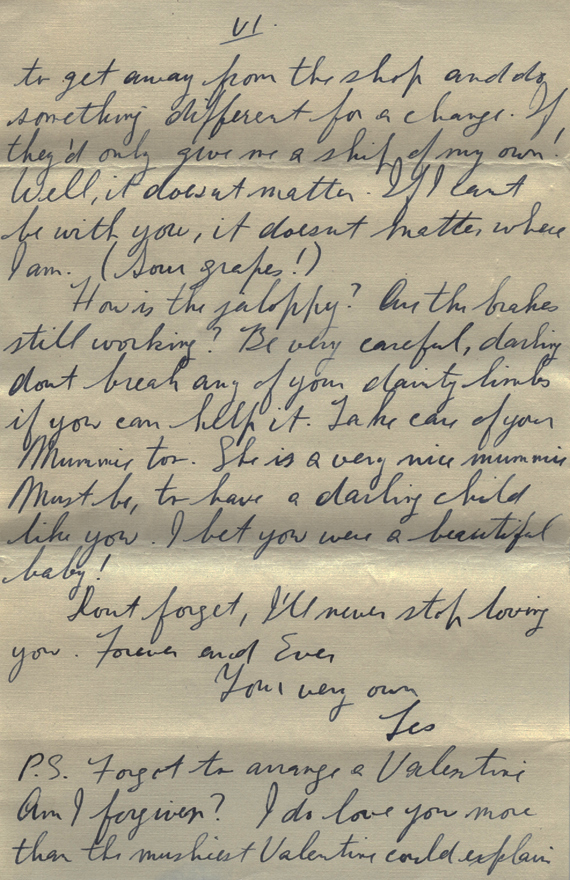 VI.
to get away from the shop and do
something different for a change. If
they'd only give me a ship of my own!
Well, it doesnt matter. If I cant
be with you, it doesnt matter where
I am. (Sour grapes!)
How is the jaloppy? Are the brakes
still working? Be very careful, darling
dont break any of your dainty limbs
if you can help it. Take care of your
Mummie too. She is a very nice mummie
Must be, to have a darling child
like you. I bet you were a beautiful
baby!
Dont forget, I'll never stop loving
you. Forever and Ever
Your very own
Les
P.S. Forgot to arrange a Valentine
Am I forgiven? I do love you more
than the mushiest Valentine could explain